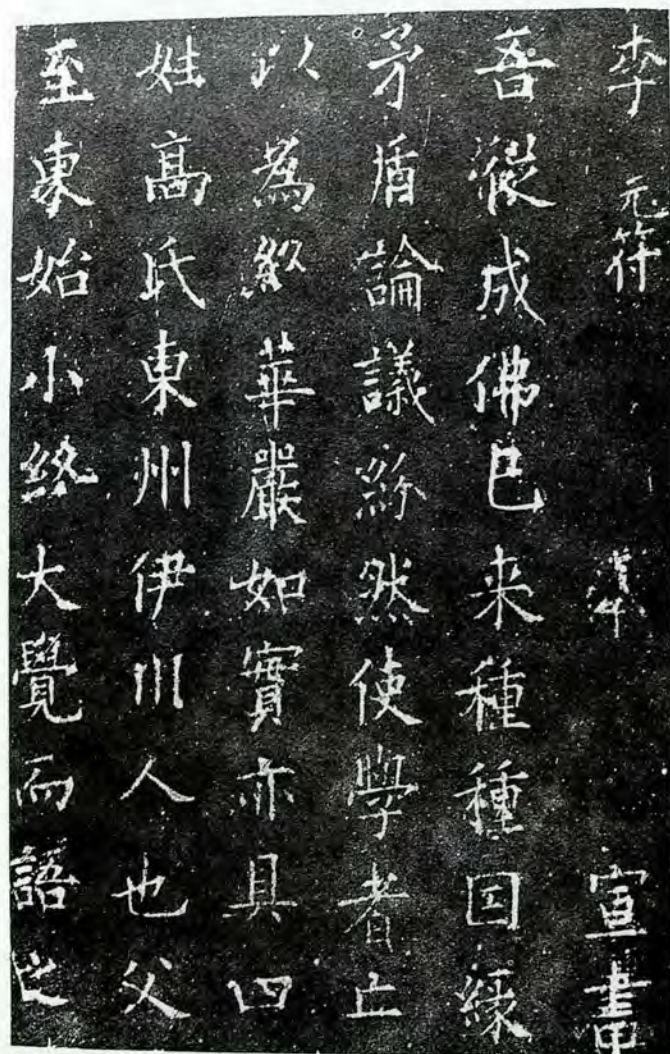 李 元符 宣書
吾嶶成佛已来種種因緣
矛盾論議紛然使學者止
以為欸華嚴如實亦具四
姓高氏東州伊川人也父
至東始小終大覺而語之